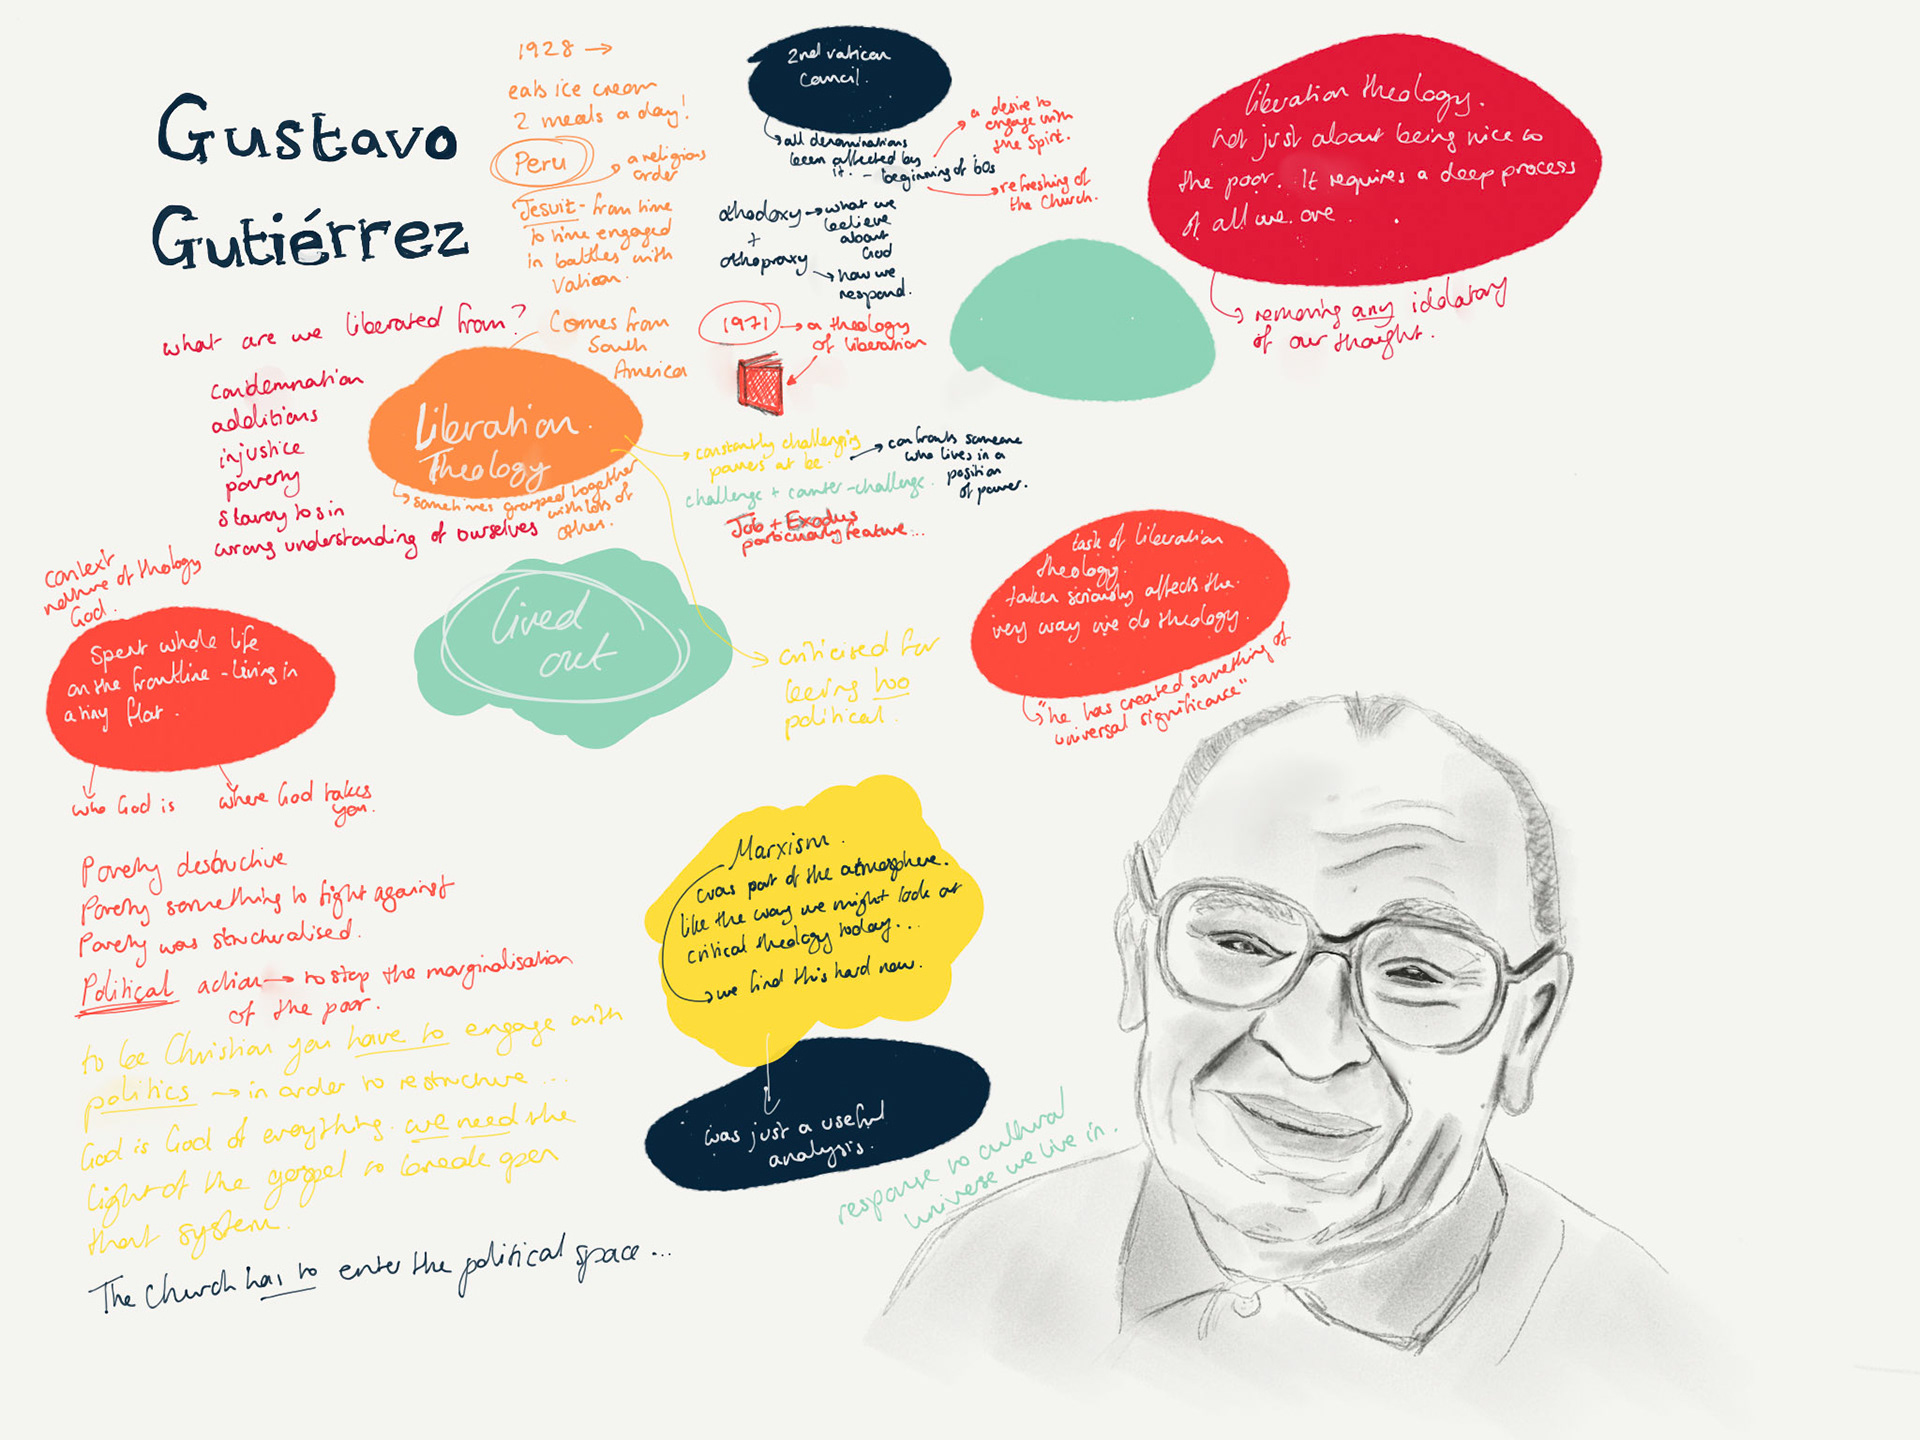 Gustavo
Gutiérrez
1928 →
eats ice cream
2 meals a day!
Peru
a religious
order
Jesuit - from time
to time engaged
in battles with
Vatican.
2nd vatican
Council.
all denominations
been affected by
it. - beginning of 60s
a desire to
engage with
the Spirit.
refreshing of
the Church.
othodoxy → what we
believe
about
God
+
othopraxy → how we
respond.
1971 → a theology
of liberation
liberation theology.
not just about being nice to
the poor. It requires a deep process
of all we are.
removing any idolatory
of our thought.
what are we liberated from?
condemnation
additions
injustice
poverty
slavery to sin
wrong understanding of ourselves
Comes from
South
America
Liberation
Theology
sometimes grouped together
with lots of
others.
constantly challenging
powers at be.
confronts someone
who lives in a
position
of power.
challenge + counter-challenge.
Job + Exodus
particularly feature...
context
nature of theology
God.
Spent whole life
on the frontline - living in
a tiny flat.
who God is
where God takes
you.
Lived
out
criticised for
being too
political.
task of liberation
theology.
taken seriously affects the
very way we do theology.
"he has created something of
universal significance"
Poverty destructive
Poverty something to fight against
Poverty was structuralised.
Political action → to stop the marginalisation
of the poor.
to be Christian you have to engage with
politics → in order to restructure ...
God is God of everything. we need the
light of the gospel to break open
that system.
The Church has to enter the political space ...
Marxism.
was part of the atmosphere.
like the way we might look at
critical theology today...
we find this hard now.
was just a useful
analysis.
response to cultural
universe we live in.